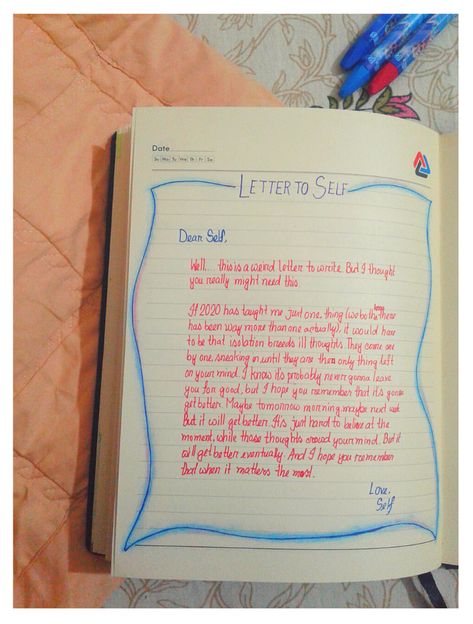 Date
Su Mo Tu We Th Fr Sa
LETTER TO SELF
Dear Self,
Well... this is a weird letter to write. But I thought
you really might need this.
If 2020 has taught me just one thing (we both know there
has been way more than one actually), it would have
to be that isolation breeds ill thoughts. They come one
by one, sneaking in, until they are the only thing left
on your mind. I know it's probably never gonna leave
you for good, but I hope you remember that it's gonna
get better. Maybe tomorrow morning, maybe next week
But it will get better. It's just hard to believe at the
moment, while those thoughts crowd your mind. But it
will get better eventually. And I hope you remember
that when it matters the most.
Love,
Self